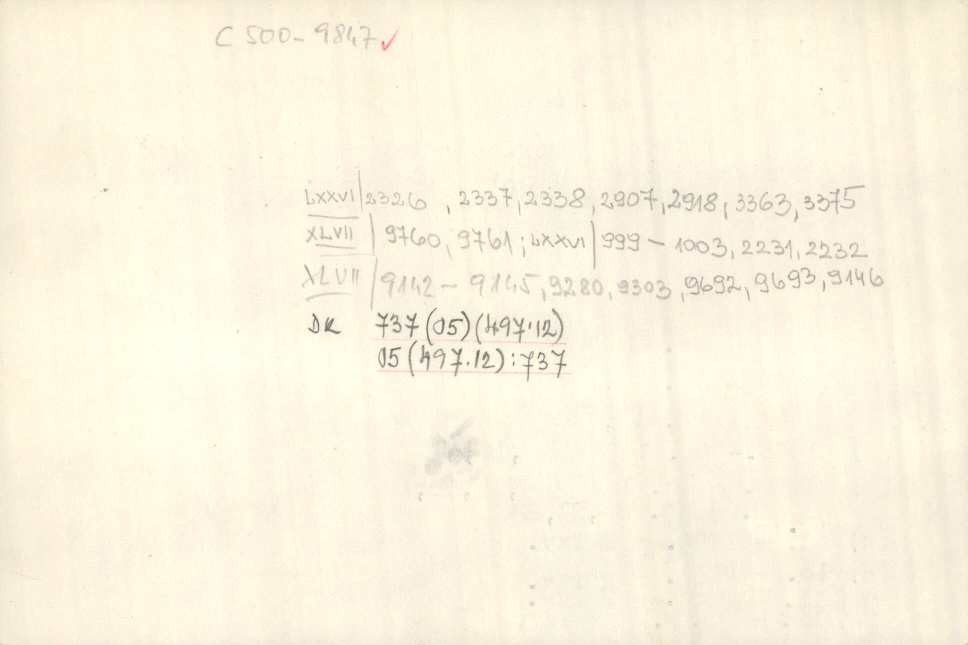 C 500-9847✓
LXXVI|2326, 2337, 2338, 2907, 2918, 3363, 3375
XLVII | 9760, 9761; LXXVI| 999 - 1003, 2231, 2232
XLVII |9142 - 9145, 9280, 9303, 9692, 9693, 9146
DK 737(05)(497.12)
05(497.12):737